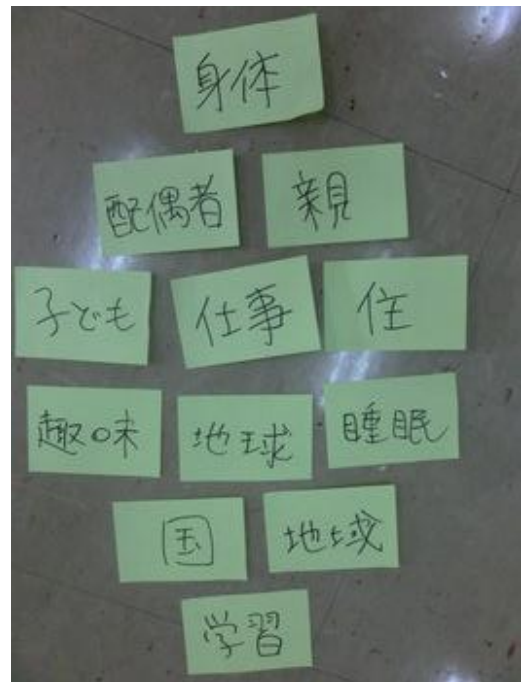 身体
配偶者 親
子ども 仕事 住
趣味 地球 睡眠
国 地域
学習